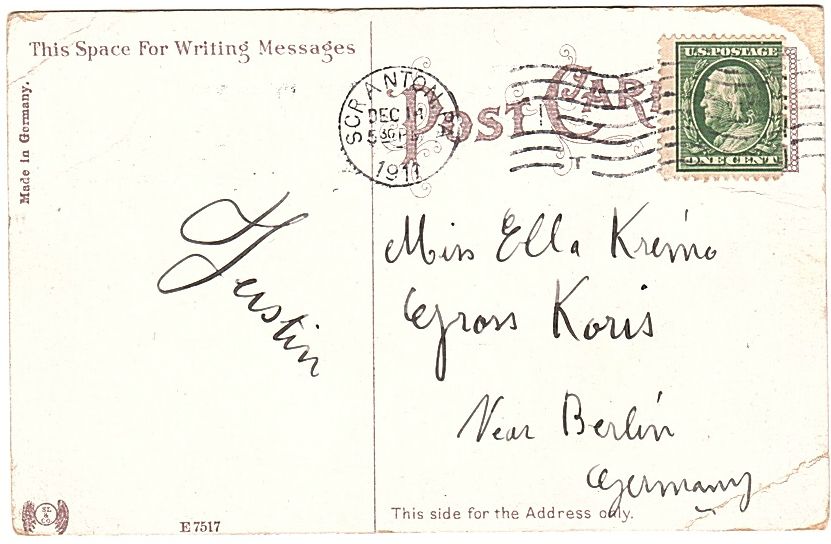 This Space For Writing Messages
Made in Germany.
POST CARD
SCRANTON PA
DEC 14
5 30 P
1911
U.S. POSTAGE
ONE CENT
Miss Ella
Gross Koris
Near Berlin
Germany
This side for the Address only.
E 7517
SL & CO